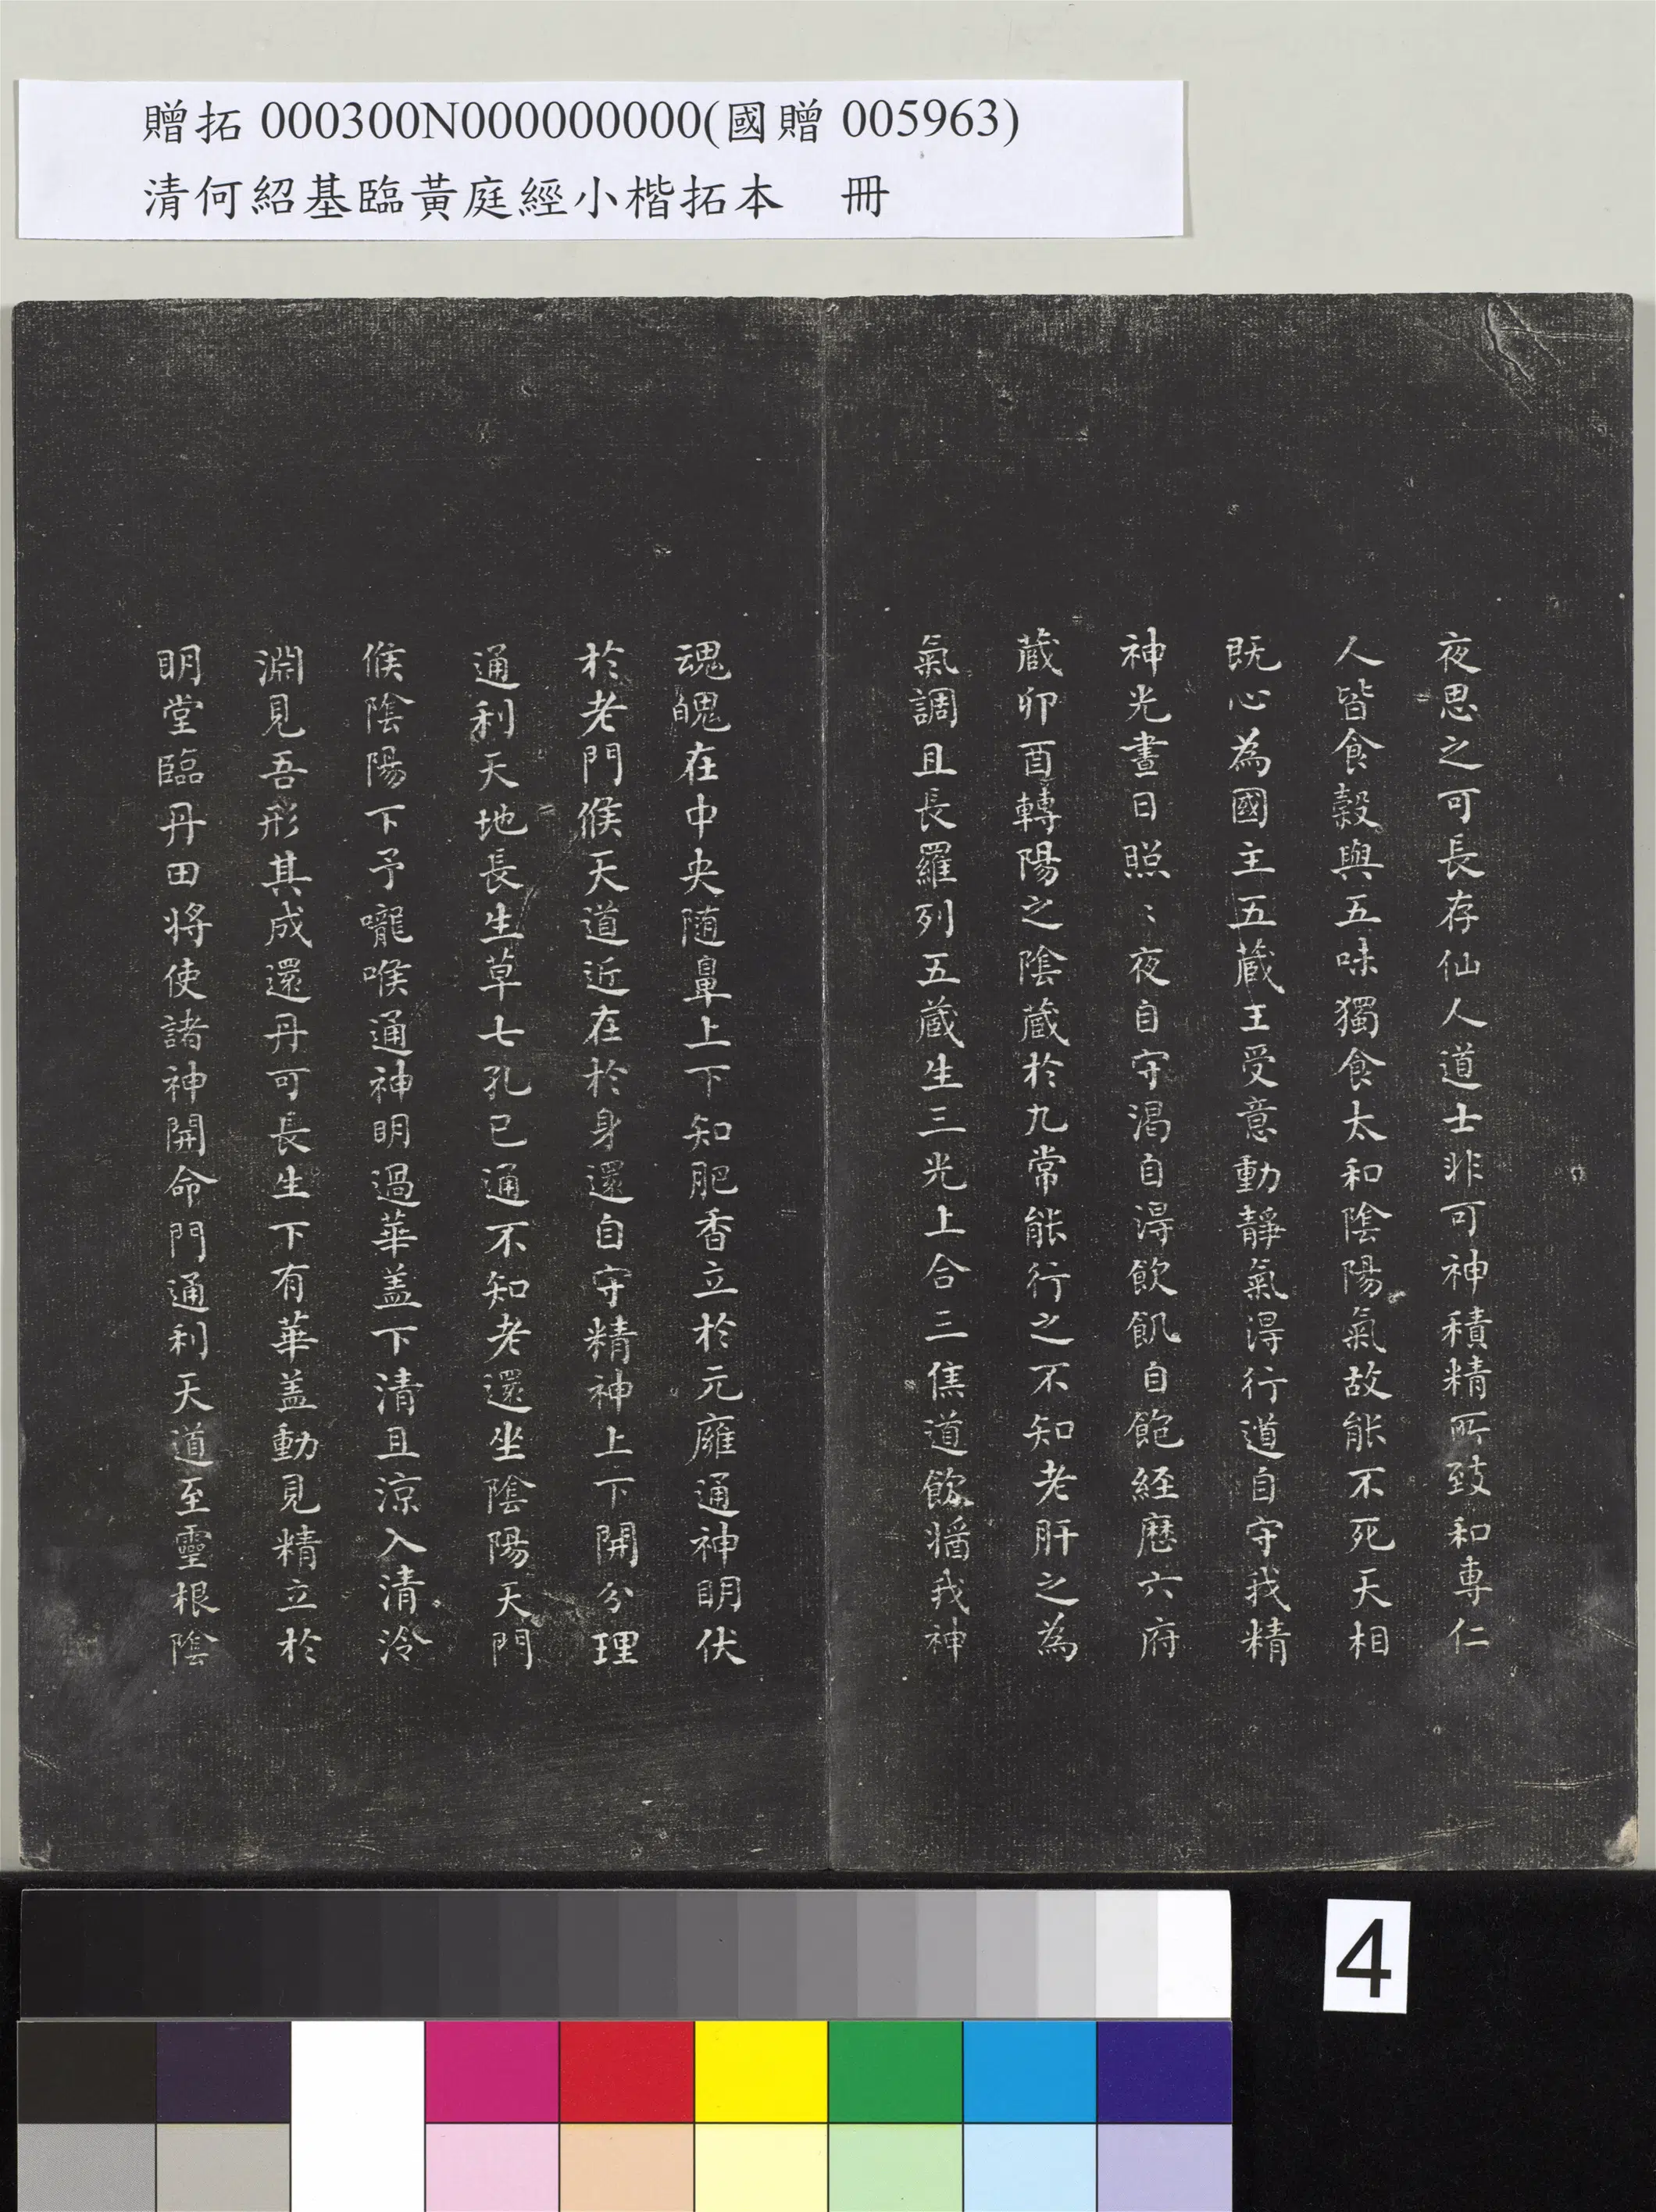 贈拓 000300N000000000(國贈 005963)
清何紹基臨黃庭經小楷拓本 冊
夜思之可長存仙人道士非可神積精所致和專仁
人皆食穀與五味獨食太和陰陽氣故能不死天相
既心為國主五藏王受意動靜氣淂行道自守我精
神光晝日照〻夜自守渴自淂飲飢自飽経歷六府
藏卯酉轉陽之陰藏於九常能行之不知老肝之為
氣調且長羅列五藏生三光上合三焦道飲醬我神
魂魄在中央随鼻上下知肥香立於元膺通神明伏
於老門候天道近在於身還自守精神上下開分理
通利天地長生草七孔已通不知老還坐陰陽天門
候陰陽下予嚨喉通神明過華盖下清且涼入清泠
淵見吾形其成還丹可長生下有華盖動見精立於
明堂臨丹田将使諸神開命門通利天道至靈根陰
4